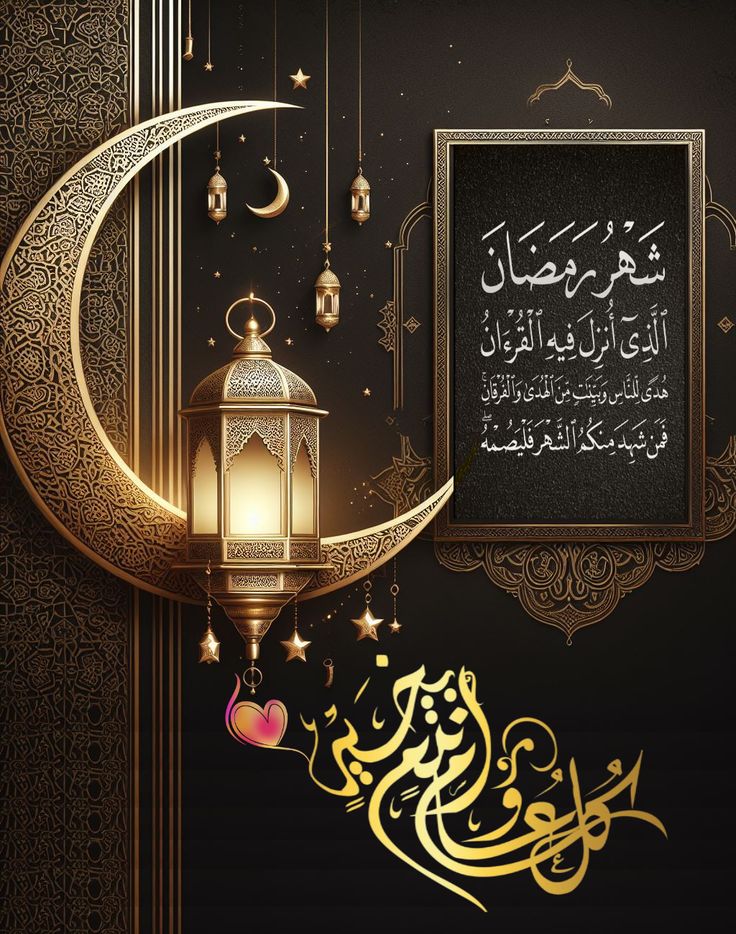 شَهْرُ رَمَضَانَ
ٱلَّذِىٓ أُنزِلَ فِيهِ ٱلْقُرْءَانُ
هُدًى لِّلنَّاسِ وَبَيِّنَٰتٍ مِّنَ ٱلْهُدَىٰ وَٱلْفُرْقَانِ ۚ
فَمَن شَهِدَ مِنكُمُ ٱلشَّهْرَ فَلْيَصُمْهُ ۖ
كُلُّ عَامٍ وَأَنْتُمْ بِخَيْرٍ